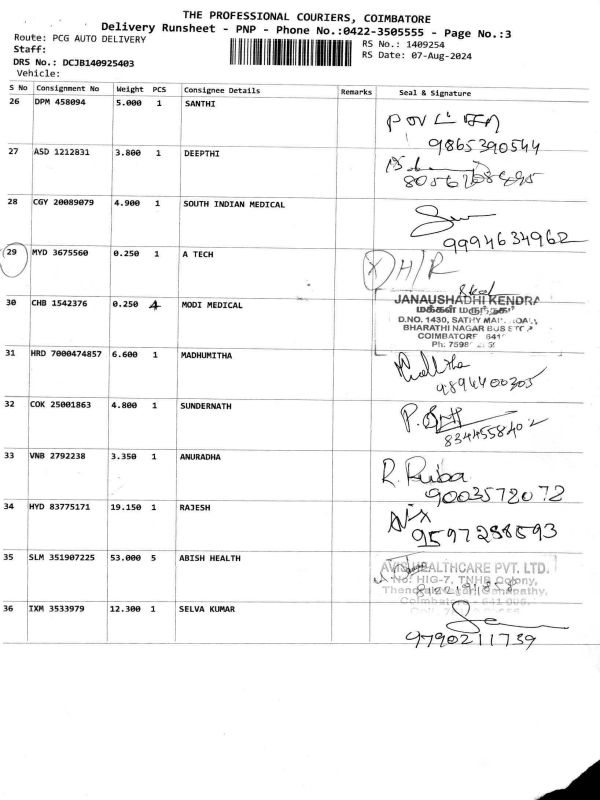 THE PROFESSIONAL COURIERS, COIMBATORE
Delivery Runsheet - PNP - Phone No.:0422-3505555 - Page No.:3
Route: PCG AUTO DELIVERY RS No.: 1409254
Staff: RS Date: 07-Aug-2024
DRS No.: DCJB140925403
Vehicle:
S No Consignment No Weight PCS Consignee Details Remarks Seal & Signature
26 DPM 458094 5.000 1 SANTHI
9865390544
27 ASD 1212831 3.800 1 DEEPTHI
28 CGY 20089079 4.900 1 SOUTH INDIAN MEDICAL
9994634962
29 MYD 3675560 0.250 1 A TECH X H/R
30 CHB 1542376 0.250 1 MODI MEDICAL
JANAUSHADHI KENDRA
மக்கள் மருந்தகம்
D.NO. 1430, SATHY MAIN ROAD,
BHARATHI NAGAR BUS STOP
COIMBATORE 641
Ph: 7598
31 HRD 7000474857 6.600 1 MADHUMITHA
9894400305
32 COK 25001863 4.800 1 SUNDERNATH
8344558402
33 VNB 2792238 3.350 1 ANURADHA
R. Ruba
9003572072
34 HYD 83775171 19.150 1 RAJESH
9597288593
35 SLM 351907225 53.000 5 ABISH HEALTH
HEALTHCARE PVT. LTD.
No: HIG-7, TNHB Colony,
Ganapathy,
Coimbatore - 641 006.
36 IXM 3533979 12.300 1 SELVA KUMAR
9790211739